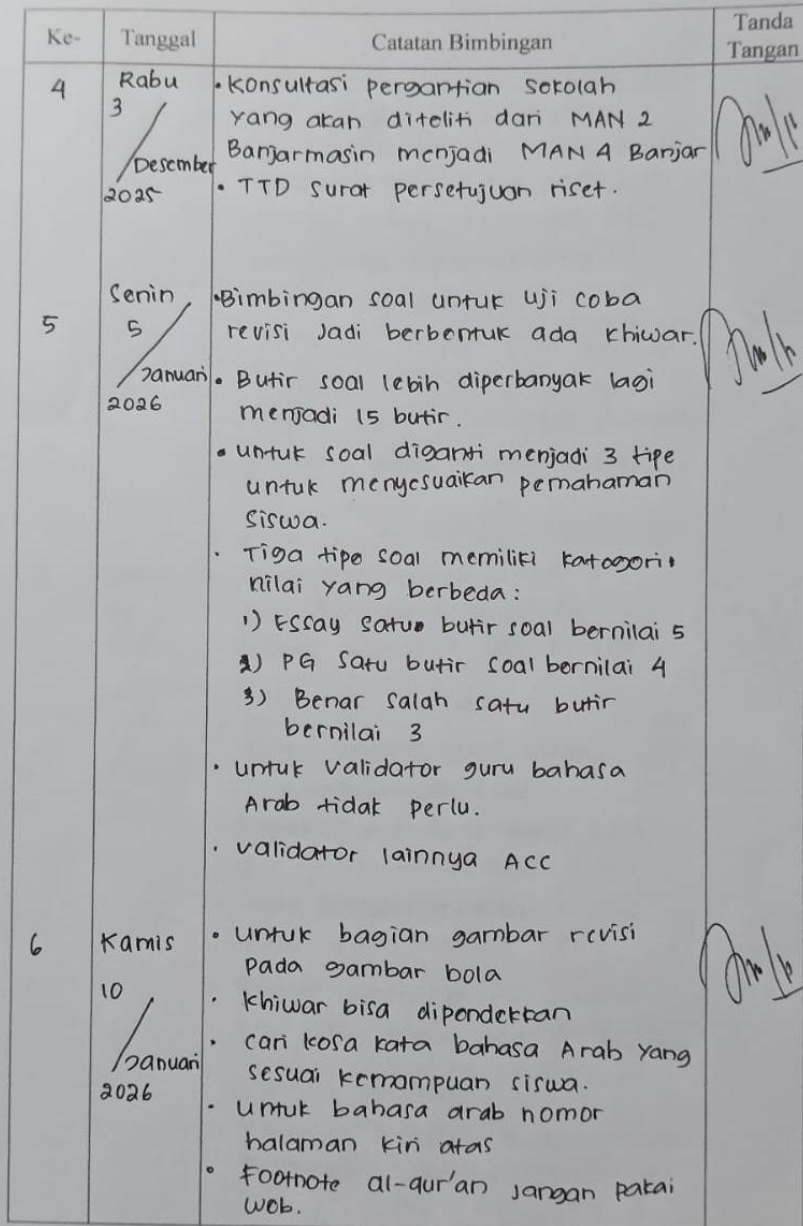 Ke-
Tanggal
Catatan Bimbingan
Tanda
Tangan
4
Rabu
3
/
Desember
2025
• Konsultasi pergantian sekolah
yang akan diteliti dari MAN 2
Banjarmasin menjadi MAN 4 Banjar
• TTD Surat persetujuan riset.
5
Senin
5
/
Januari
2026
• Bimbingan soal untuk uji coba
revisi Jadi berbentuk ada khiwar.
• Butir soal lebih diperbanyak lagi
menjadi 15 butir.
• untuk soal diganti menjadi 3 tipe
untuk menyesuaikan pemahaman
siswa.
• Tiga tipe soal memiliki katogori
nilai yang berbeda:
1) Essay satu butir soal bernilai 5
2) PG Satu butir soal bernilai 4
3) Benar salah satu butir
bernilai 3
• untuk validator guru bahasa
Arab tidak perlu.
• validator lainnya ACC
6
Kamis
10
/
Januari
2026
• untuk bagian gambar revisi
pada gambar bola
• Khiwar bisa dipendekkan
• cari kosa kata bahasa Arab yang
sesuai kemampuan siswa.
• untuk bahasa arab nomor
halaman kiri atas
• Footnote al-qur'an jangan pakai
web.